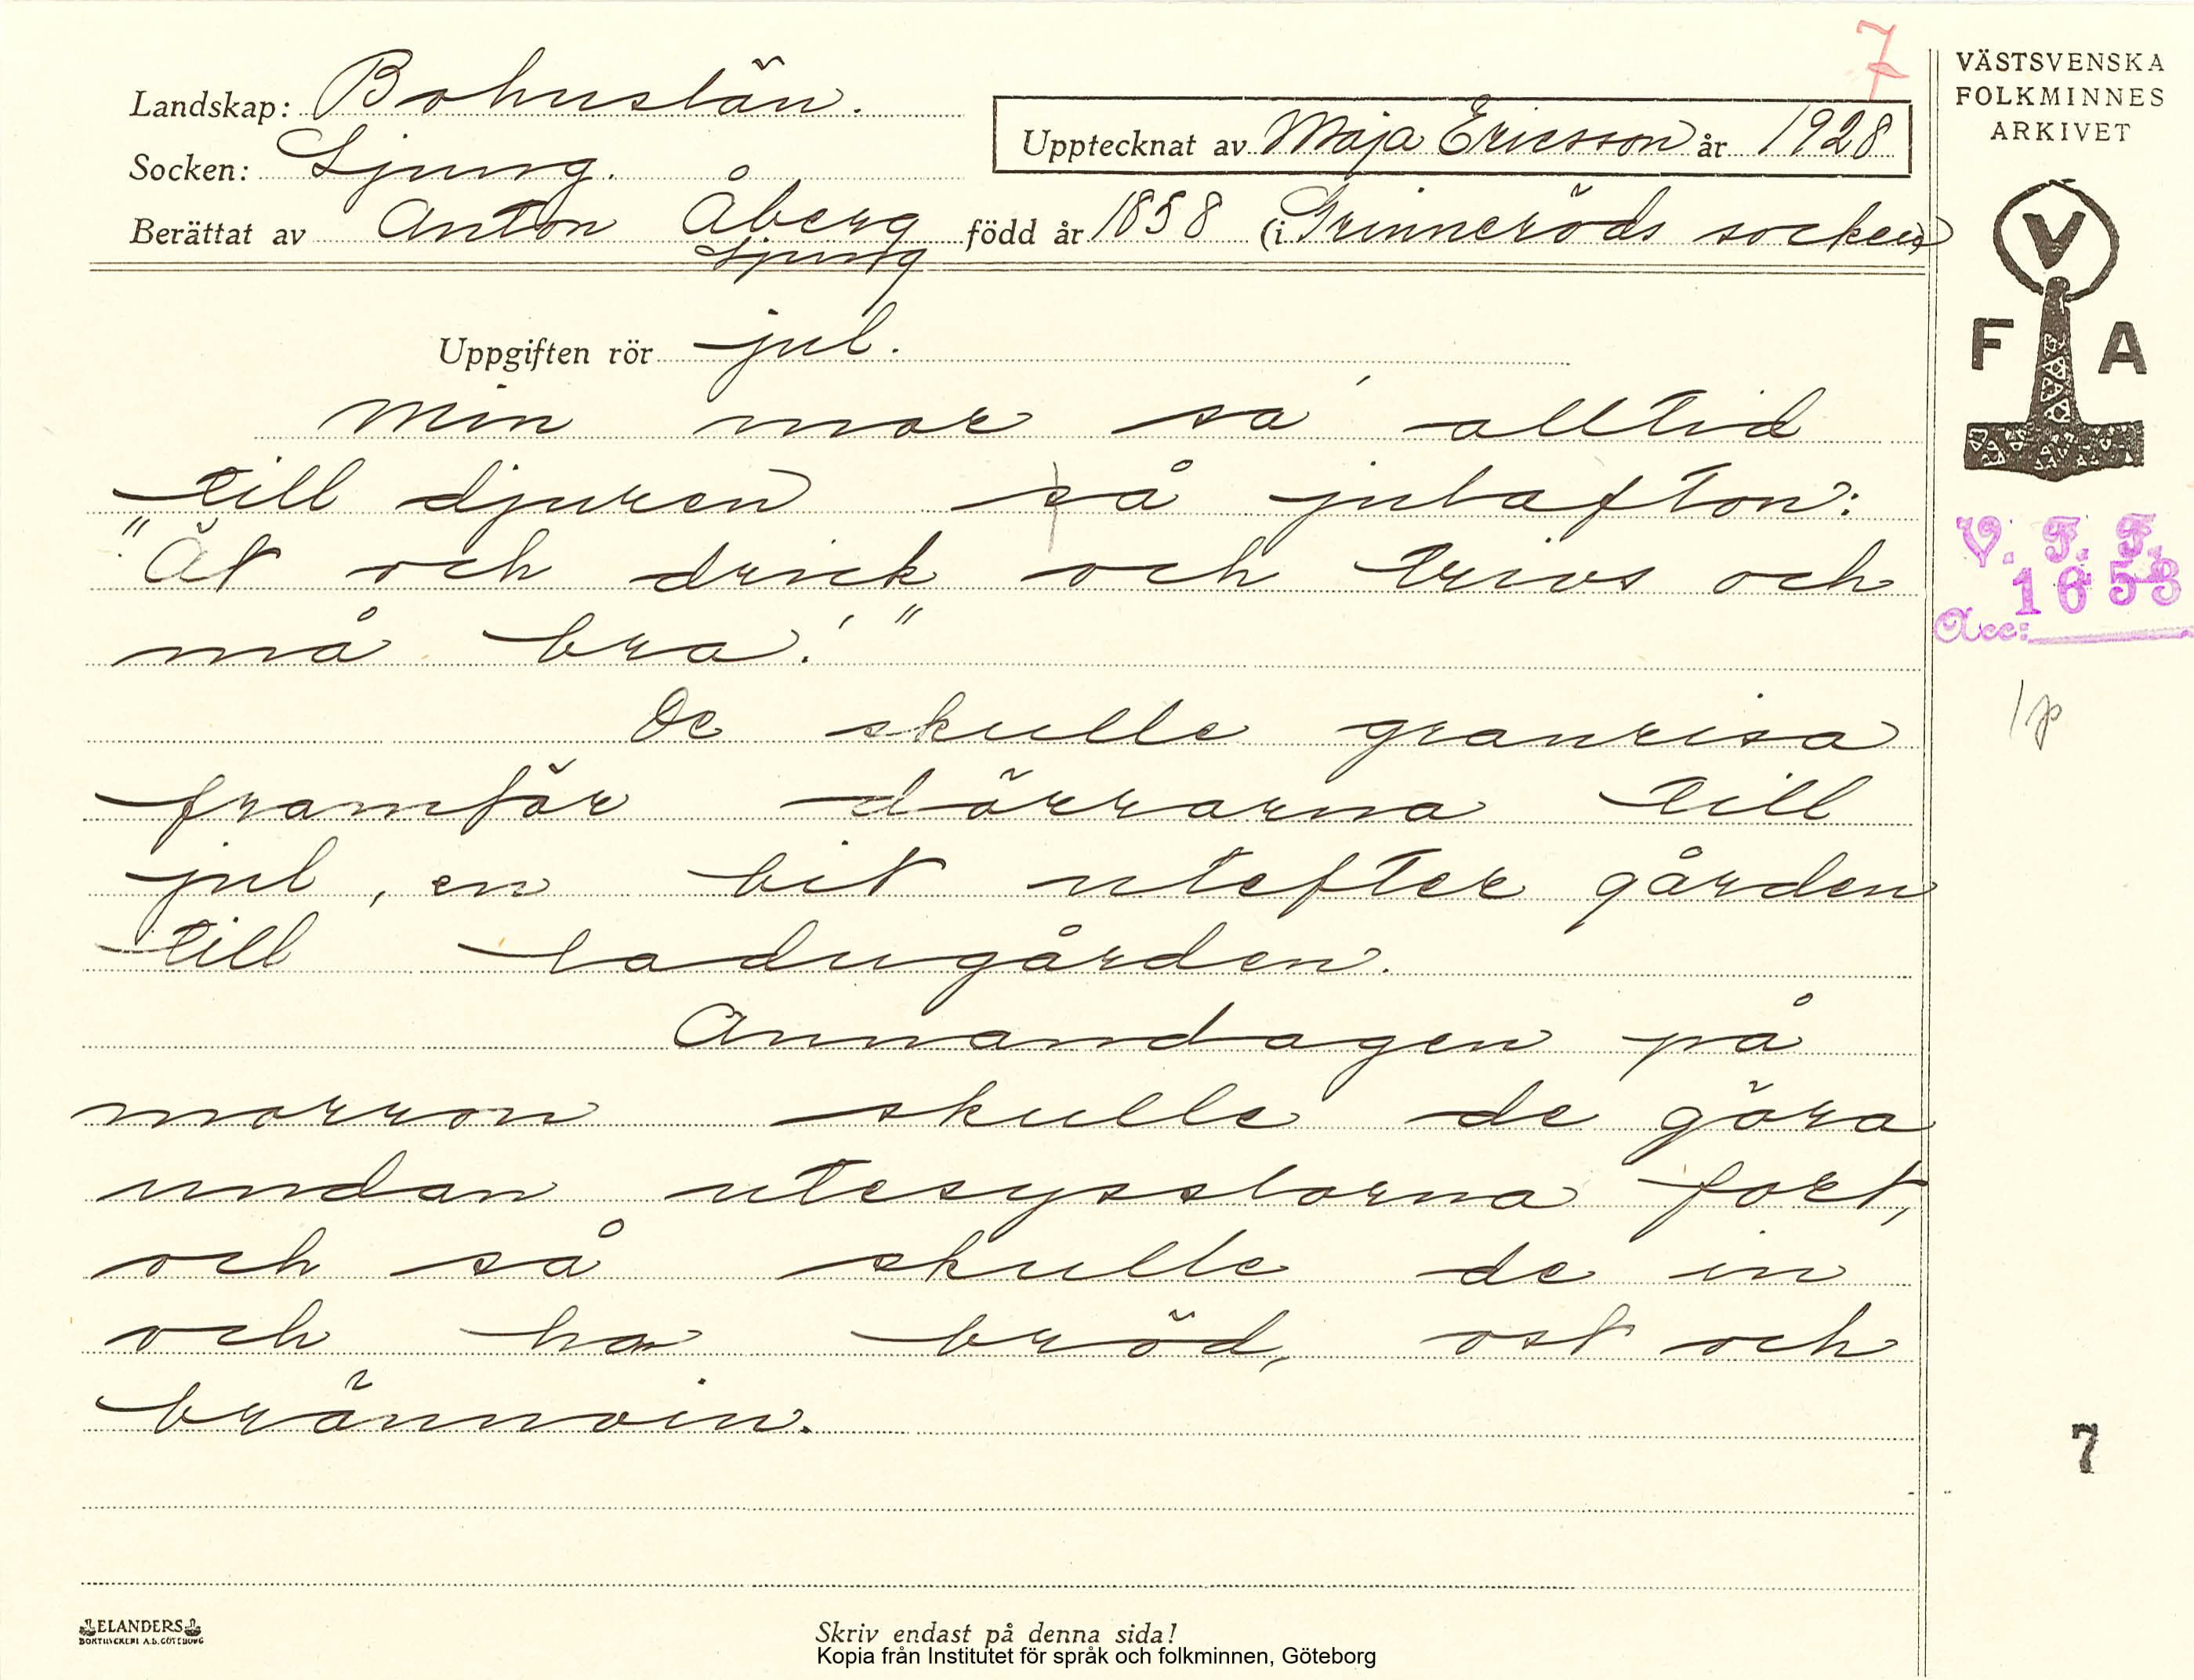 7
VÄSTSVENSKA
FOLKMINNES
ARKIVET
Landskap: Bohuslän.
Upptecknat av Maja Ericsson år 1928
Socken: Ljung.
Berättat av Anton Åberg född år 1858 (i Grinneröds socken)
Ljung
V
F A
Uppgiften rör jul.
Min mor sa' alltid
till djuren på julafton:
"Ät och drick och trivs och
må bra!"
De skulle granrisa
framför dörrarna till
jul, en bit utefter gården
till ladugården.
Annandagen på
morron skulle de göra
undan utesysslorna fort,
och så skulle de in
och ha bröd, ost och
brännvin.
V. F. F.
1653
Acc:
7
ELANDERS
BOKTRYCKERI A.B. GÖTEBORG
Skriv endast på denna sida!
Kopia från Institutet för språk och folkminnen, Göteborg